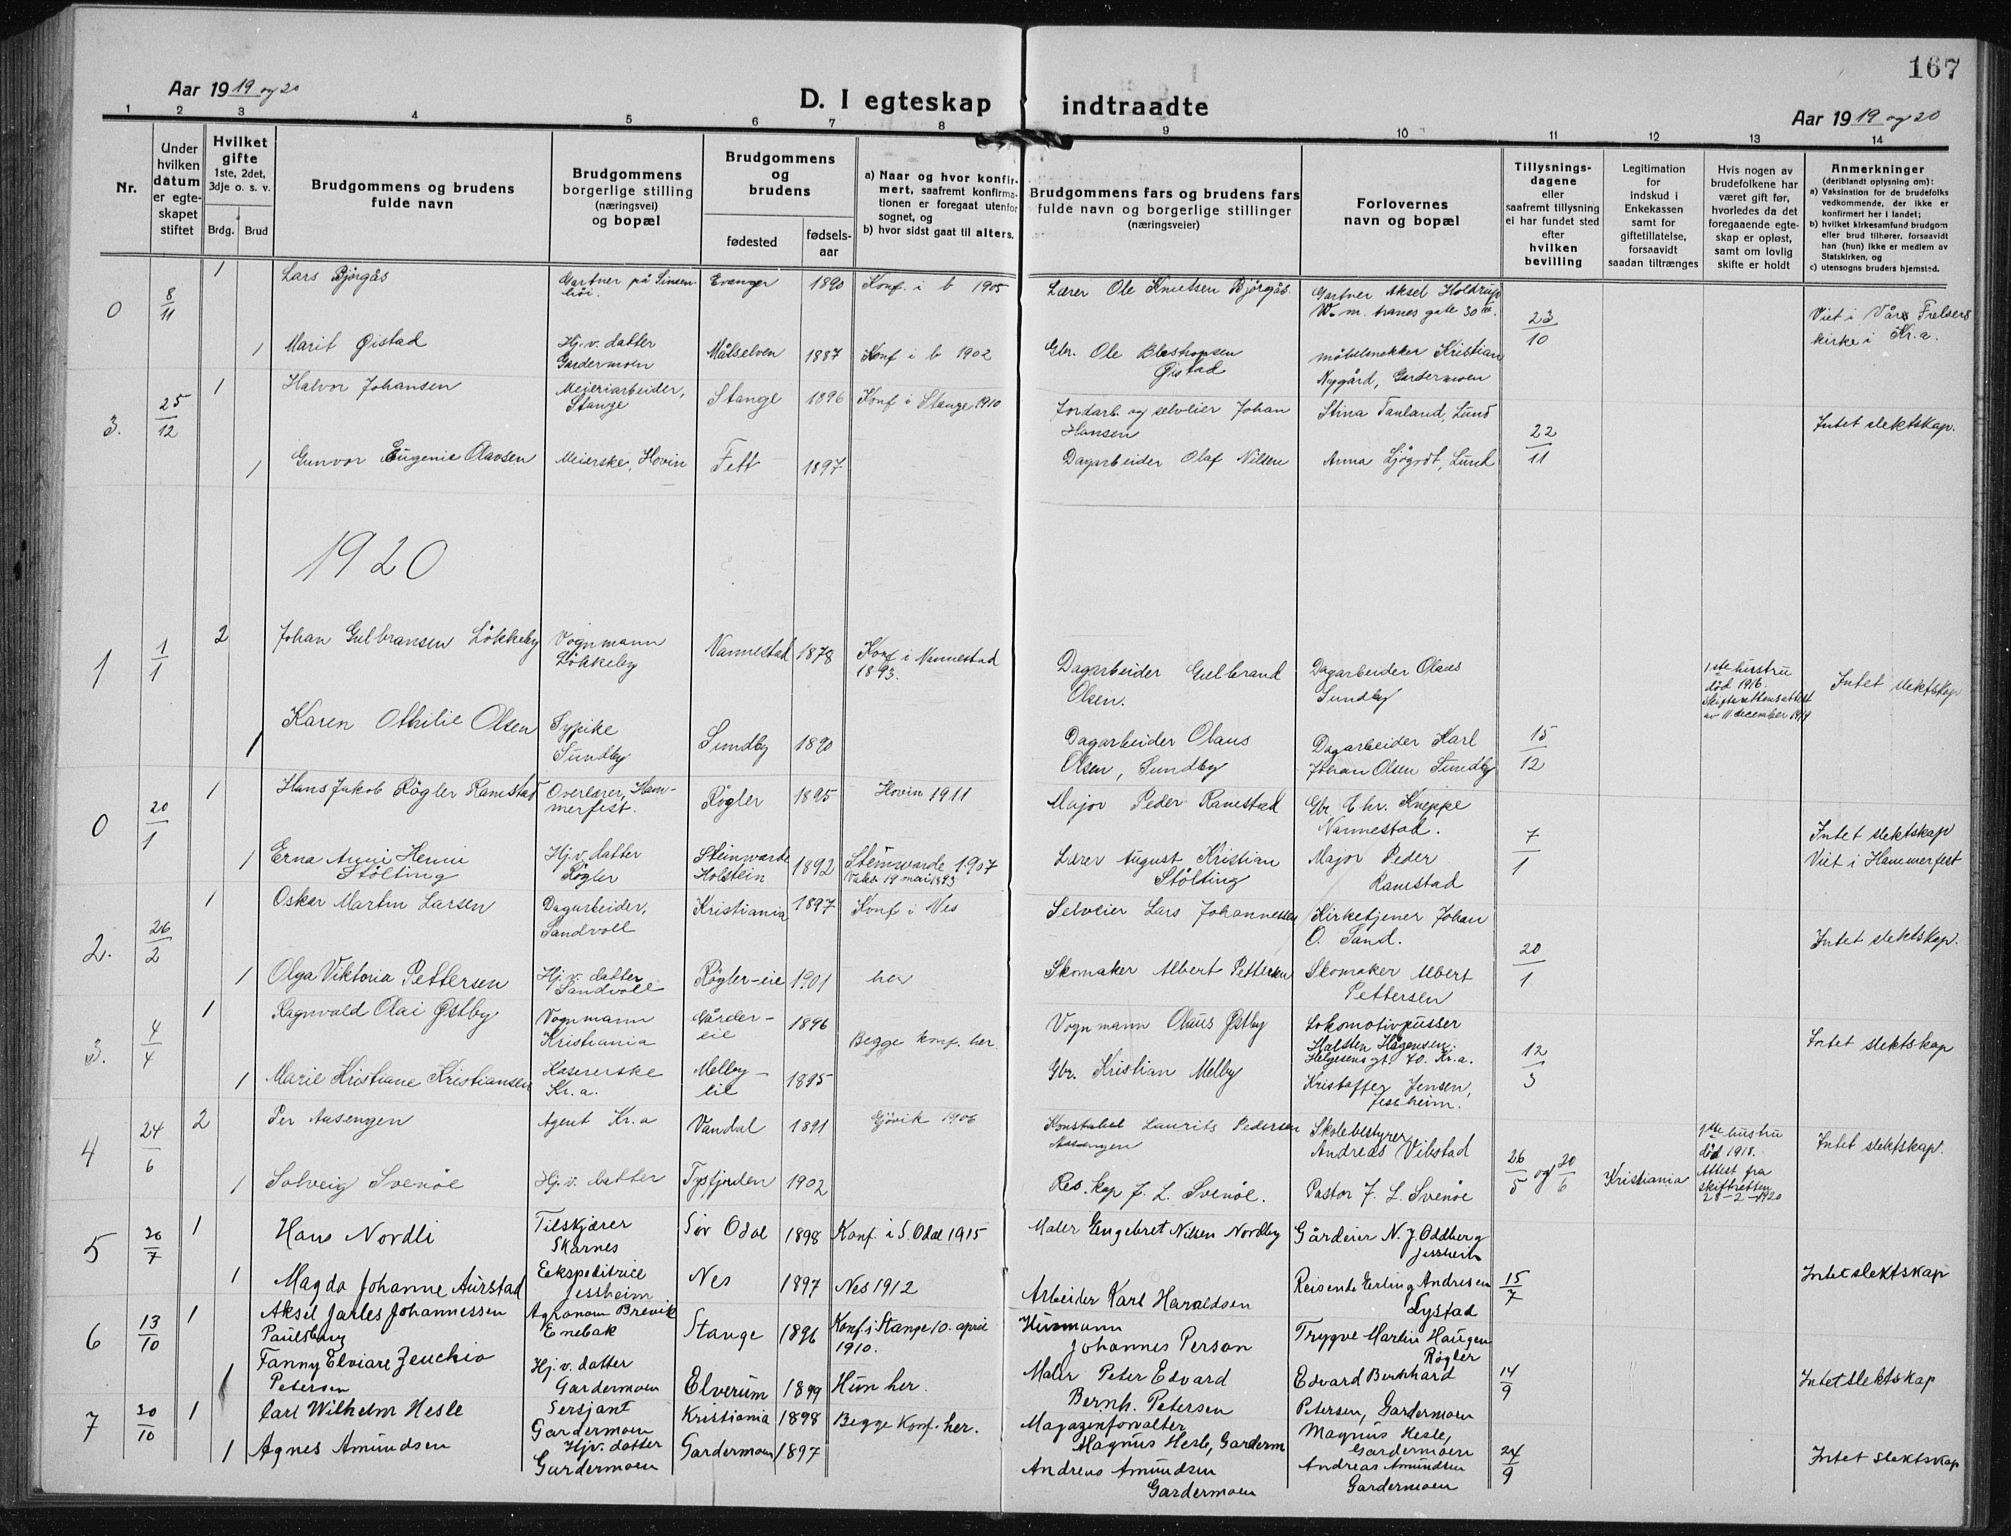 167
Aar 1919 og 20
D. I egteskap indtraadte
Aar 1919 og 20
1 2 3 4 5 6 7 8 9 10 11 12 13 14
Nr.
Under hvilken datum er egte-skapet stiftet
Hvilket gifte 1ste, 2det, 3dje o. s. v.
Brdg. Brud
Brudgommens og brudens fulde navn
Brudgommens borgerlige stilling (næringsvei) og bopæl
Brudgommens og brudens
fødested
fødsels-aar
a) Naar og hvor konfir-mert, saafremt konfirma-tionen er foregaat utenfor sognet, og
b) hvor sidst gaat til alters.
Brudgommens fars og brudens fars fulde navn og borgerlige stillinger (næringsveier)
Forlovernes navn og bopæl
Tillysnings-dagene eller saafremt tillysning ei har fundet sted efter hvilken bevilling
Legitimation for indskud i Enkekassen samt for giftetillatelse, forsaavidt saadan tiltrænges
Hvis nogen av brudefolkene har været gift før, hvorledes da det foregaaende egte-skap er opløst, samt om lovlig skifte er holdt
Anmerkninger (deriblandt oplysning om):
a) Vaksination for de brudefolks vedkommende, der ikke er konfirmert her i landet;
b) hvilket kirkesamfund brudgom eller brud tilhører, forsaavidt han (hun) ikke er medlem av Statskirken, og
c) utensogns bruders hjemsted.
0 8/11 1 Lars Bjørgås Gartner på Sinsen-höi. Evanger 1890 Konf. i b 1905 Lærer Ole Knutsen Bjørgås Gartner Aksel Holdrup W. m. tranes gate 30 23/10 Viet i Vår Frelsers kirke i Kr.a.
1 Marit Øistad Hj.v. datter Gardermoen Målselven 1887 Konf i b 1902 Gbr. Ole Øistad møbelsnekker Kristian Nygård, Gardermoen
3. 25/12 1 Halvor Johansen Meieriarbeider, Stange Stange 1896 Konf i Stange 1910 Jordarb og selveier Johan Hansen Stina Lund 22/11 Intet slektskap.
1 Gunvor Eugenie Olavsen Meierske, Hovin Fett 1897 Dagarbeider Olaf Nilsen Anna Lund
1920
1 1/1 2 Johan Gulbransen Løkkeby Vognmann Løkkeby Nannestad 1878 Konf i Nannestad 1893. Dagarbeider Gulbrand Olsen. Dagarbeider Olaus Sundby 1ste hustru død 1916 Skifterettens attest av 11 december 1919 Intet slektskap
1 Karen Othilie Olsen Sypike Sundby Sundby 1890 Dagarbeider Olaus Olsen, Sundby Dagarbeider Karl Johan Olsen Sundby 15/12
0 20/1 1 Hans Jakob Røgler Ramstad Overlærer, Ham-merfest. Røgler 1895 Hovin 1911 Major Peder Ramstad Gbr. Chr. Kneppe Nannestad. 7/1 Intet slektskap Viet i Hammerfest
1 Erna Anni Henni Stölting Hj.v. datter Røgler Steinwarde Holstein 1892 Steinwarde 1907 Vaks. 19 mai 1893 Lærer August Kristian Stölting Major Peder Ramstad
2. 26/2 1 Oskar Martin Larsen Dagarbeider, Sandvoll Kristiania 1897 Konf i Nes Selveier Lars Johannessen Kirketjener Johan O. Sand. 20/1 Intet slektskap.
1 Olga Viktoria Pettersen Hj.v. datter Sandvoll Røgler-eie 1901 her Skomaker Albert Pettersen Skomaker Albert Pettersen
3. 4/4 1 Ragnvald Olai Østby Vognmann Kristiania Gårder-eie 1896 Begge konf. her Vognmann Olaus Østby Lokomotivpusser Halsten Hågensen. Helgesens gt 70. Kr.a. 12/3 Intet slektskap
1 Marie Kristiane Kristiansen Kasererske Kr.a. Melby-eie 1895 Gbr. Kristian Melby Kristoffer Jensen, Jessheim.
4 24/6 2 Per Aasengen Agent Kr.a Vardal 1891 Gjøvik 1906 Konstabel Laurits Pedersen Aasengen Skolebestyrer Andreas Vibstad 26/5 og 20/6 Kristiania 1ste hustru død 1918. Attest fra skifteretten 28-2-1920 Intet slektskap.
1 Solveig Svenöe Hj.v. datter Tysfjorden 1902 Res. kap J. L. Svenöe. Pastor J. L. Svenöe
5 20/7 1 Hans Nordli Tilskjærer Skarnes Sör Odal 1898 Konf. i S. Odal 1915 Maler Engebret Nilsen Nordby Gårdeier N. J. Oddberg Jessheim 15/7 Intet slektskap
1 Magda Johanne Aurstad Eekspeditrice Jessheim Nes 1897 Nes 1912 Arbeider Karl Haraldsen Reisende Erling Andresen Lystad
6 13/10 1 Aksel Jarles Johannessen Paulsberg Agronom Brevik Enebak Stange 1896 Konf. i Stange 10. april 1910. Husmann Johannes Person Trygve Martin Haugen Røgler 14/9 Intet slektskap
1 Fanny Elviare Petersen Hj.v. datter Gardermoen Elverum 1899 Hun her. Maler Peter Edvard Bernh. Petersen Edvard Bernhard Petersen, Gardermoen
7 20/10 1 Carl Wilhelm Hesle Sersjant Gardermoen Kristiania 1898 Begge Konf. her. Magazinforvalter Magnus Hesle, Garderm Magnus Hesle, Gardermoen 24/9 Intet slektskap
1 Agnes Amundsen Hjv. datter Gardermoen Gardermoen 1897 Andreas Amundsen Gardermoen Andreas Amundsen Gardermoen